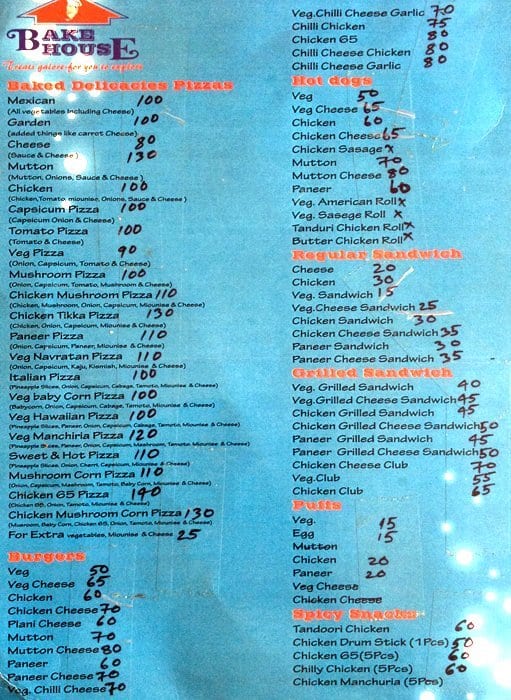 BAKE
HOUSE
Treats galore for you to explore
Baked Delicacies Pizzas
Mexican 100
(All vegetables Including Cheese)
Garden 100
(added things like carrot Cheese)
Cheese 80
(Sauce & Cheese) 130
Mutton
(Mutton, Onions, Sauce & Cheese)
Chicken 100
(Chicken, Tomato, miounise, Onions, Sauce & Cheese)
Capsicum Pizza 100
(Capsicum Onion & Cheese)
Tomato Pizza 100
(Tomato & Cheese)
Veg Pizza 90
(Onion, Capsicum, Tomato & Cheese)
Mushroom Pizza 100
(Onion, Capsicum, Tomato, Mushroom & Cheese)
Chicken Mushroom Pizza 110
(Chicken, Mushroom, Onion, Capsicum, Miounise & Cheese)
Chicken Tikka Pizza 130
(Chicken, Onion, Capsicum, Miounise & Cheese)
Paneer Pizza 110
(Onion, Capsicum, Paneer, Miounise & Cheese)
Veg Navratan Pizza 110
(Onion, Capsicum, Kaju, Kismish, Miounise & Cheese)
Italian Pizza 100
(Pineapple Slices, Onion, Capsicum, Cabage, Tamoto, Miounise & Cheese)
Veg baby Corn Pizza 100
(Babycorn, Onion, Capsicum, Cabage, Tamoto, Miounise & Cheese)
Veg Hawaiian Pizza 100
(Pineapple Slices, Paneer, Onion, Capsicum, Cabage, Tamoto, Miounise & Cheese)
Veg Manchiria Pizza 120
(Pineapple Slices, Paneer, Onion, Capsicum, Mushroom, Tamoto, Miounise & Cheese)
Sweet & Hot Pizza 110
(Pineapple Slices, Onion, Cherri, Capsicum, Miounise & Cheese)
Mushroom Corn Pizza 110
(Onion, Capsicum, Mushroom, Tamoto, Baby Corn, Miounise & Cheese)
Chicken 65 Pizza 140
(Chicken 65, Onion, Tamoto, Miounise & Cheese)
Chicken Mushroom Corn Pizza 130
(Musroom, Baby Corn, Chicken 65, Onion, Tamoto, Miounise & Cheese)
For Extra vegetables, Miounise & Cheese 25
Burgers
Veg 50
Veg Cheese 65
Chicken 60
Chicken Cheese 70
Plani Cheese 60
Mutton 70
Mutton Cheese 80
Paneer 60
Paneer Cheese 70
Veg. Chilli Cheese 70
Veg.Chilli Cheese Garlic 70
Chilli Chicken 75
Chicken 65 80
Chilli Cheese Chicken 80
Chilli Cheese Garlic 80
Hot dogs
Veg 50
Veg Cheese 65
Chicken 60
Chicken Cheese 65
Chicken Sasage x
Mutton 70
Mutton Cheese 80
Paneer 60
Veg. American Roll x
Veg. Sasege Roll x
Tanduri Chicken Roll x
Butter Chicken Roll x
Regular Sandwich
Cheese 20
Chicken 30
Veg. Sandwich 15
Veg.Cheese Sandwich 25
Chicken Sandwich 30
Chicken Cheese Sandwich 35
Paneer Sandwich 30
Paneer Cheese Sandwich 35
Grilled Sandwich
Veg. Grilled Sandwich 40
Veg.Grilled Cheese Sandwich 45
Chicken Grilled Sandwich 45
Chicken Grilled Cheese Sandwich 50
Paneer Grilled Sandwich 45
Paneer Grilled Cheese Sandwich 50
Chicken Cheese Club 70
Veg.Club 55
Chicken Club 65
Puffs
Veg. 15
Egg 15
Mutton
Chicken 20
Paneer 20
Veg Cheese
Chicken Cheese
Spicy Snacks
Tandoori Chicken 60
Chicken Drum Stick (1Pcs) 50
Chicken 65(5Pcs) 60
Chilly Chicken (5Pcs) 60
Chicken Manchuria (5Pcs)